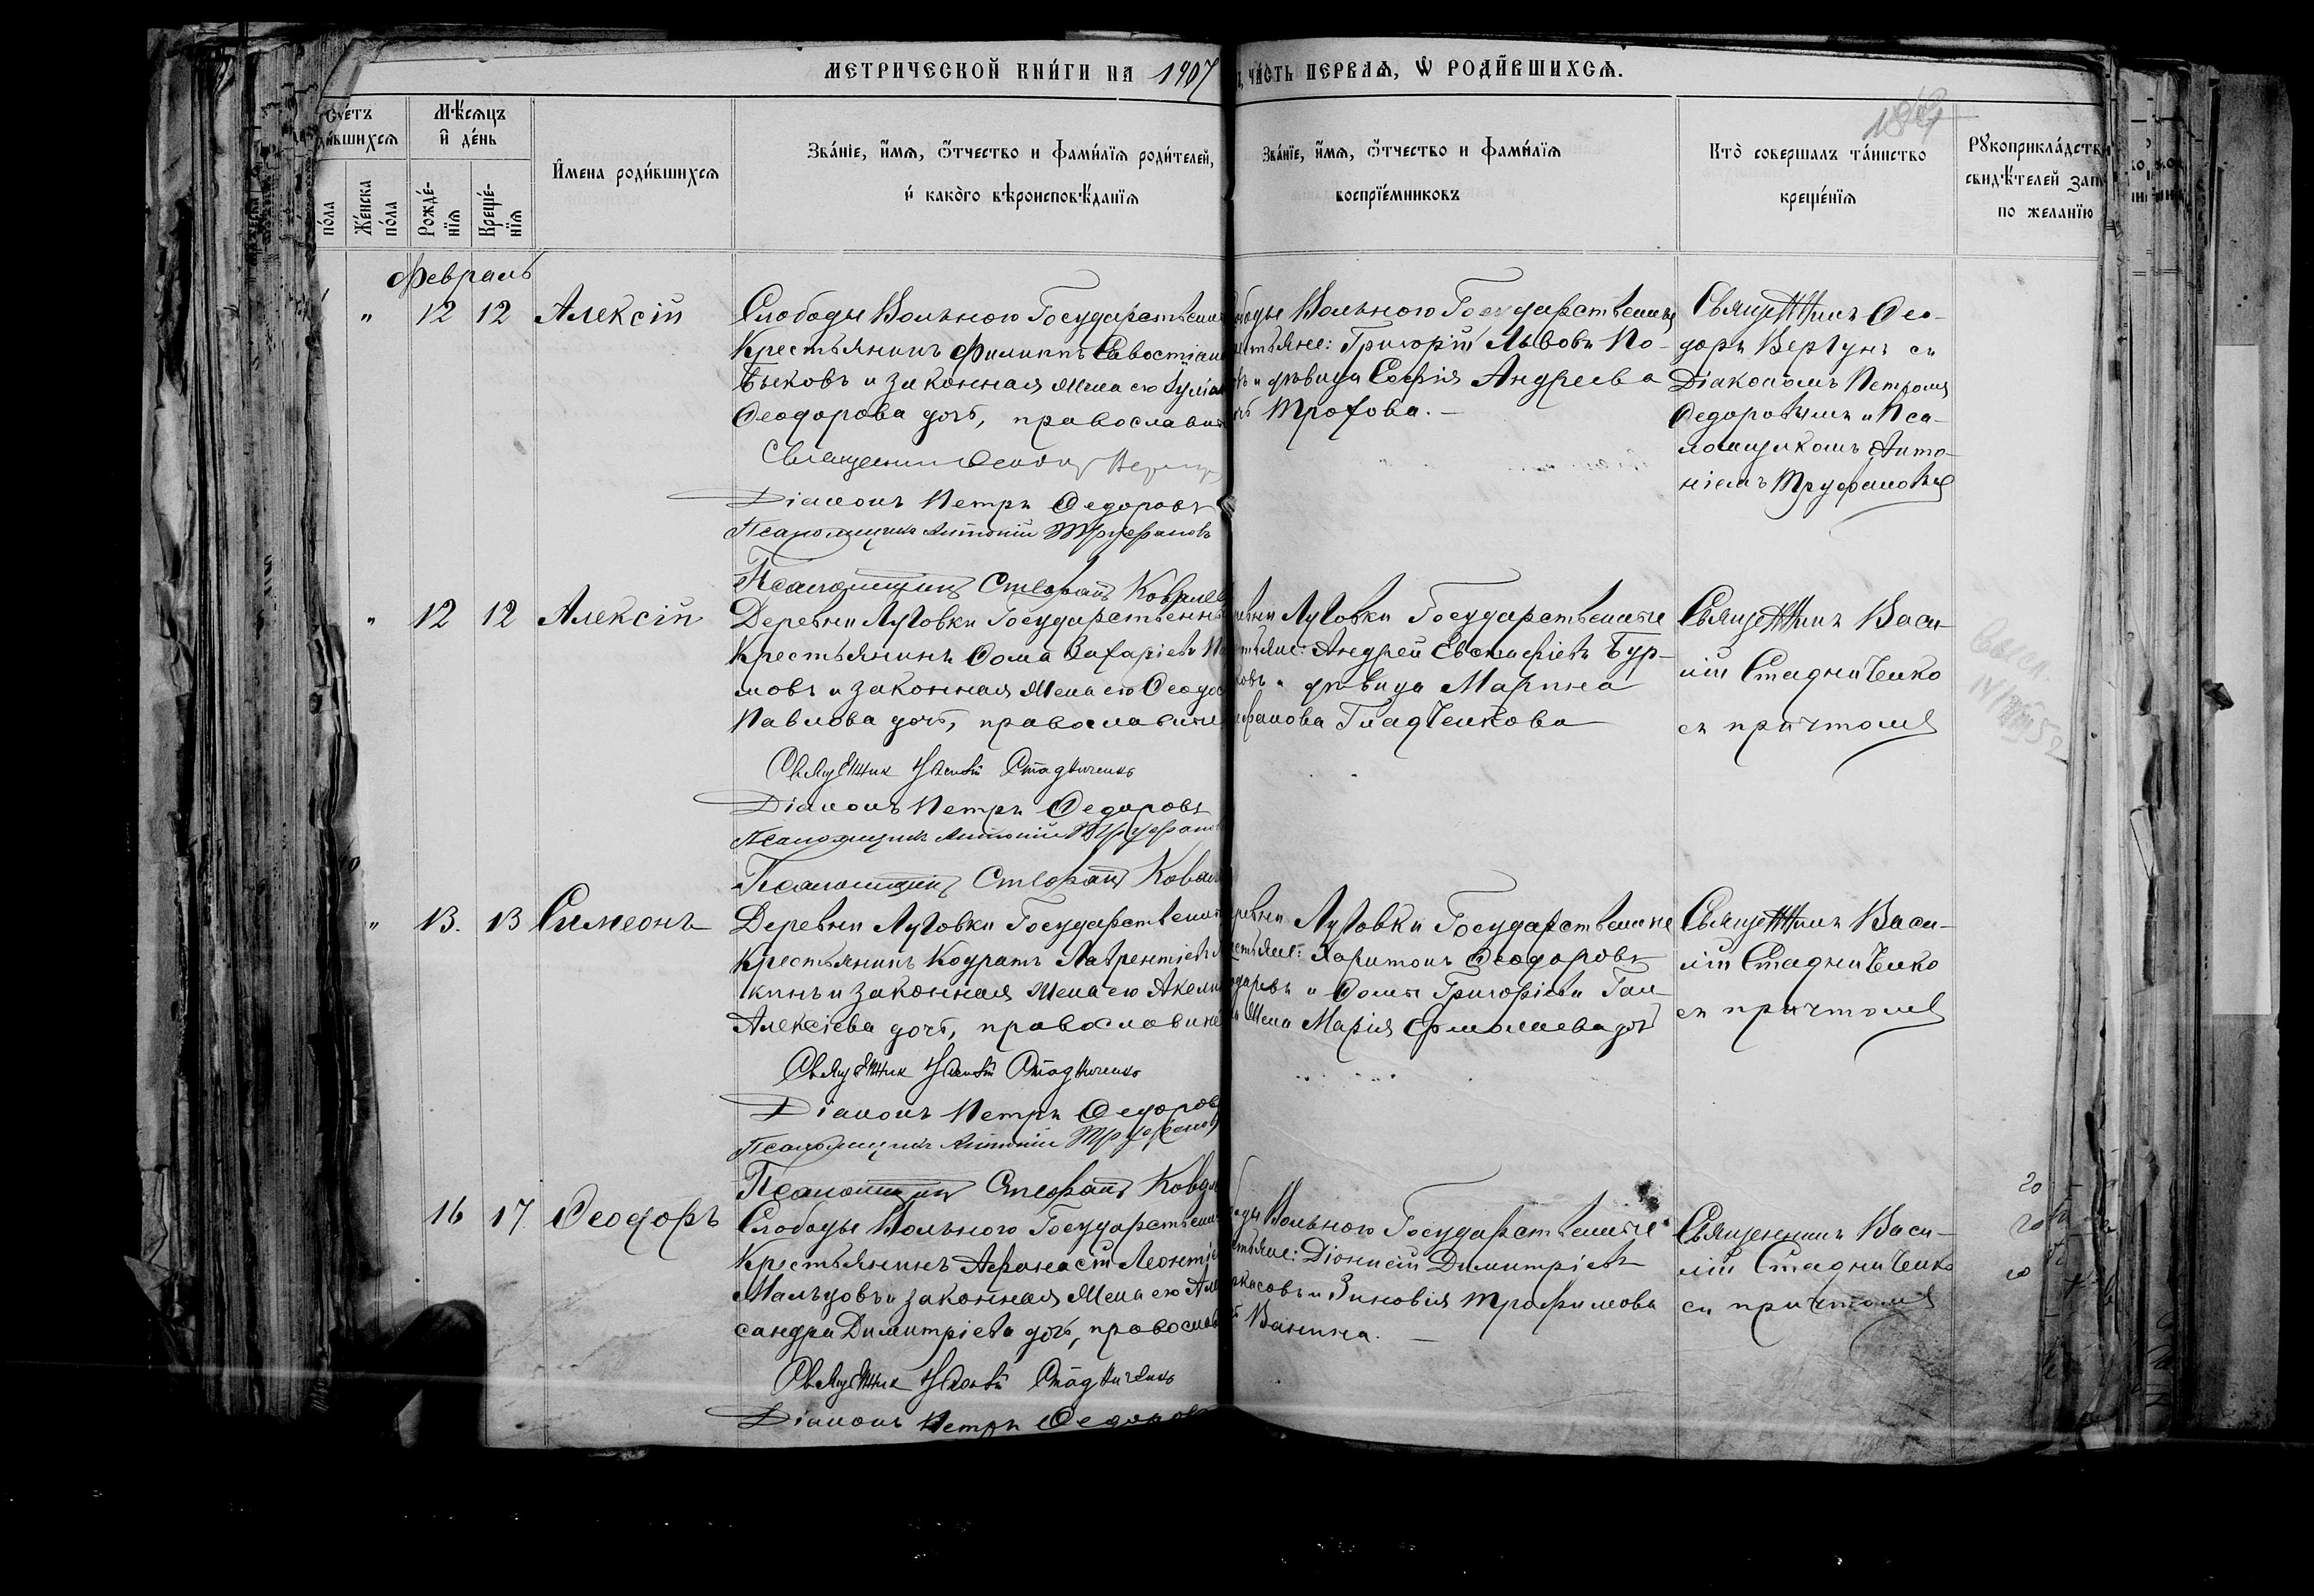 МЕТРИЧЕСКОЙ КНИ́ГИ НА 1907
ЧА́СТЬ ПЕРВАѦ, Ѡ РОДИ́ВШИХСѦ.
Сче́тъ
ди́вшихсѧ
Мѣ́сѧцъ
и҆ де́нь
И҆мена роди́вшихсѧ
Зва́нїе, и҆́мѧ, ѻ҆́тчество и фами́лїѧ роди́телей,
и҆ како́го вѣроисповѣ́данїѧ
Зва́нїе, и҆́мѧ, ѻ҆́тчество и фами́лїѧ
воспрїе́мниковъ
Кто̀ соверша́лъ та́инство
креще́нїѧ
Рꙋкоприкла́дств
свидѣ́телей зап
по жела́нїю
по́ла
Же́нска
по́ла
Рожде́-
нїѧ
Креще́-
нїѧ
Февраль
" 12 12 Алексій
Слободы Вольного Государствен
Крестьянинъ Филиппъ Евостіан
Быковъ и законная жена его
Феодорова дочь, православн
Діаконъ Петръ Федоровъ
Псаломщикъ Антоній Труфановъ
Псаломщикъ Стефанъ
Вольного Государственные
Григорій Львовъ По-
и дѣвица Софія Андреева
Трохова. —
Священникъ Ѳео-
доръ Вергунъ съ
Діакономъ Петромъ
Федоровымъ и Пса-
ломщикомъ Анто-
ніемъ Труфановымъ
" 12 12 Алексій
Деревни Луговки Государственн
Крестьянинъ Фома Захаріевъ
мовъ и законная жена его Феодос
Павлова дочь, православные
Священник Василій Стадниченко
Діаконъ Петръ Федоровъ
Псаломщикъ Антоній Труфанов
Псаломщикъ Стефанъ Ковал
Луговки Государственные
Андрей Евстафіевъ Бур-
ковъ и дѣвица Марина
фанова Гладченкова
Священникъ Васи-
лій Стадниченко
съ причтомъ
" 13. 13 Симеонъ
Деревни Луговки Государственн
Крестьянинъ Кодратъ Лаврентіевъ
кинъ и законная жена его Акели
Алексіева дочь, православные
Священник Василій Стадниченко
Діаконъ Петръ Федоров
Псаломщикъ Антоній Труфанов
Псаломщикъ Стефанъ Ковал
Луговки Государственные
Харитонъ Феодоровъ
и Фомы Григоріева Гал-
жена Марія Ермолаева дочь
Священникъ Васи-
лій Стадниченко
съ причтомъ
16 17. Феодоръ
Слободы Вольного Государствен
Крестьянинъ Афанасій Леонтіе
Мальцовъ и законная жена его Але
сандра Димитріева дочь, православ
Священник Василій Стадниченко
Діаконъ Петръ Федоров
Вольного Государственные
Діонисій Димитріевъ
и Зиновія Трофимова
Ванина. —
Священникъ Васи-
лій Стадниченко
съ причтомъ
20
20